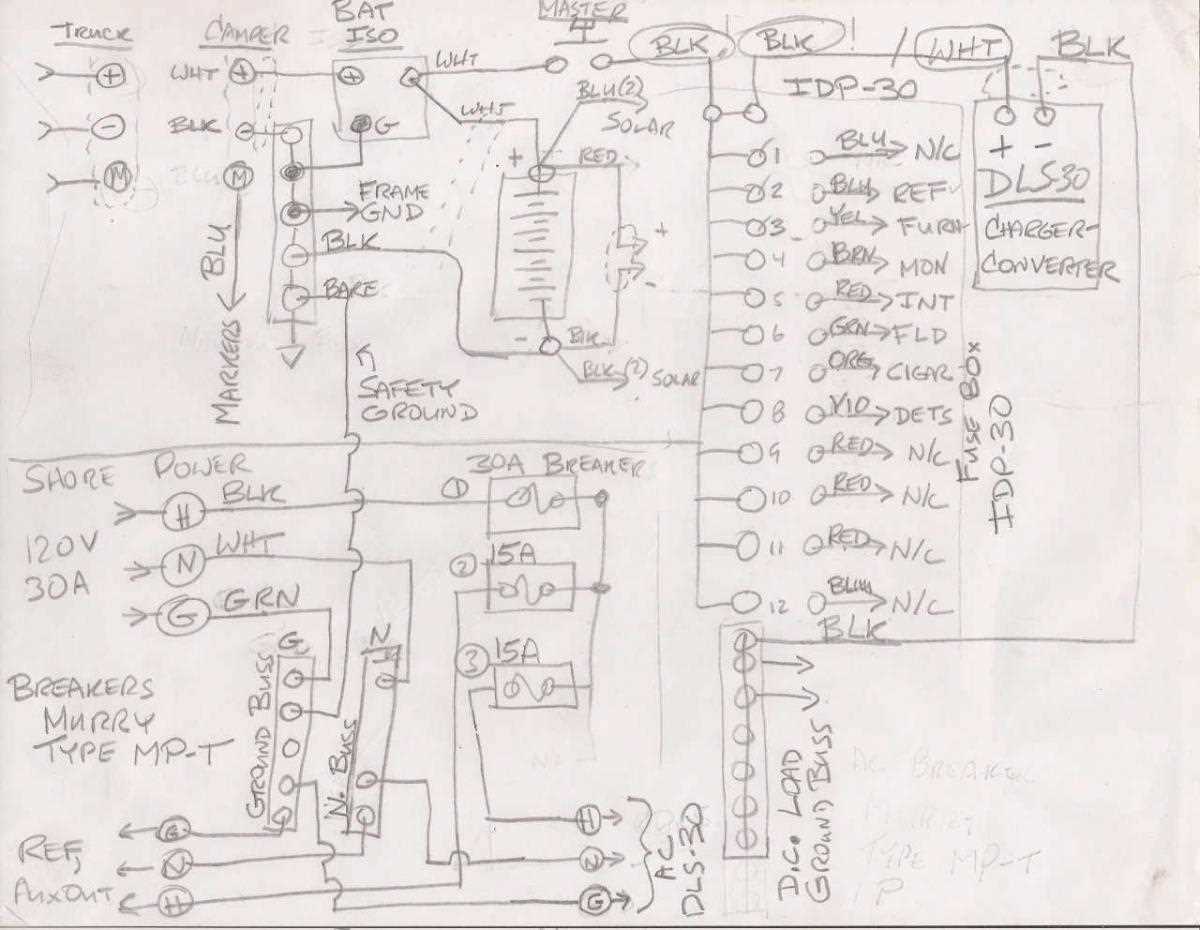 TRUCK
+
-
M
CAMPER
WHT +
BLK -
BLU M
BLU
MARKERS
BAT
ISO
+
G
WHT
WHT
MASTER
BLK!
BLK!
/ WHT
BLK
BLU(2)
SOLAR
+
RED
+
-
-
BLK
BLK(2) SOLAR
FRAME
GND
BLK
BARE
SAFETY
GROUND
IDP-30
1 BLU N/C
2 BLU REF
3 YEL FURN
4 BRN MON
5 RED INT
6 GRN FLD
7 ORG CIGAR
8 VIO DETS
9 RED N/C
10 RED N/C
11 RED N/C
12 BLU N/C
BLK
FUSE BOX
IDP-30
+ -
DLS-30
CHARGER-
CONVERTER
SHORE POWER
120V
30A
H BLK
N WHT
G GRN
30A BREAKER
1
2 15A
3 15A
BREAKERS
MURRY
TYPE MP-T
G
GROUND BUSS
N
N. BUSS
REF,
AUX OUT
G
N
H
H
N
G
AC
DLS-30
D.C. LOAD
GROUND BUSS
AC BREAKER
TYPE MP-T